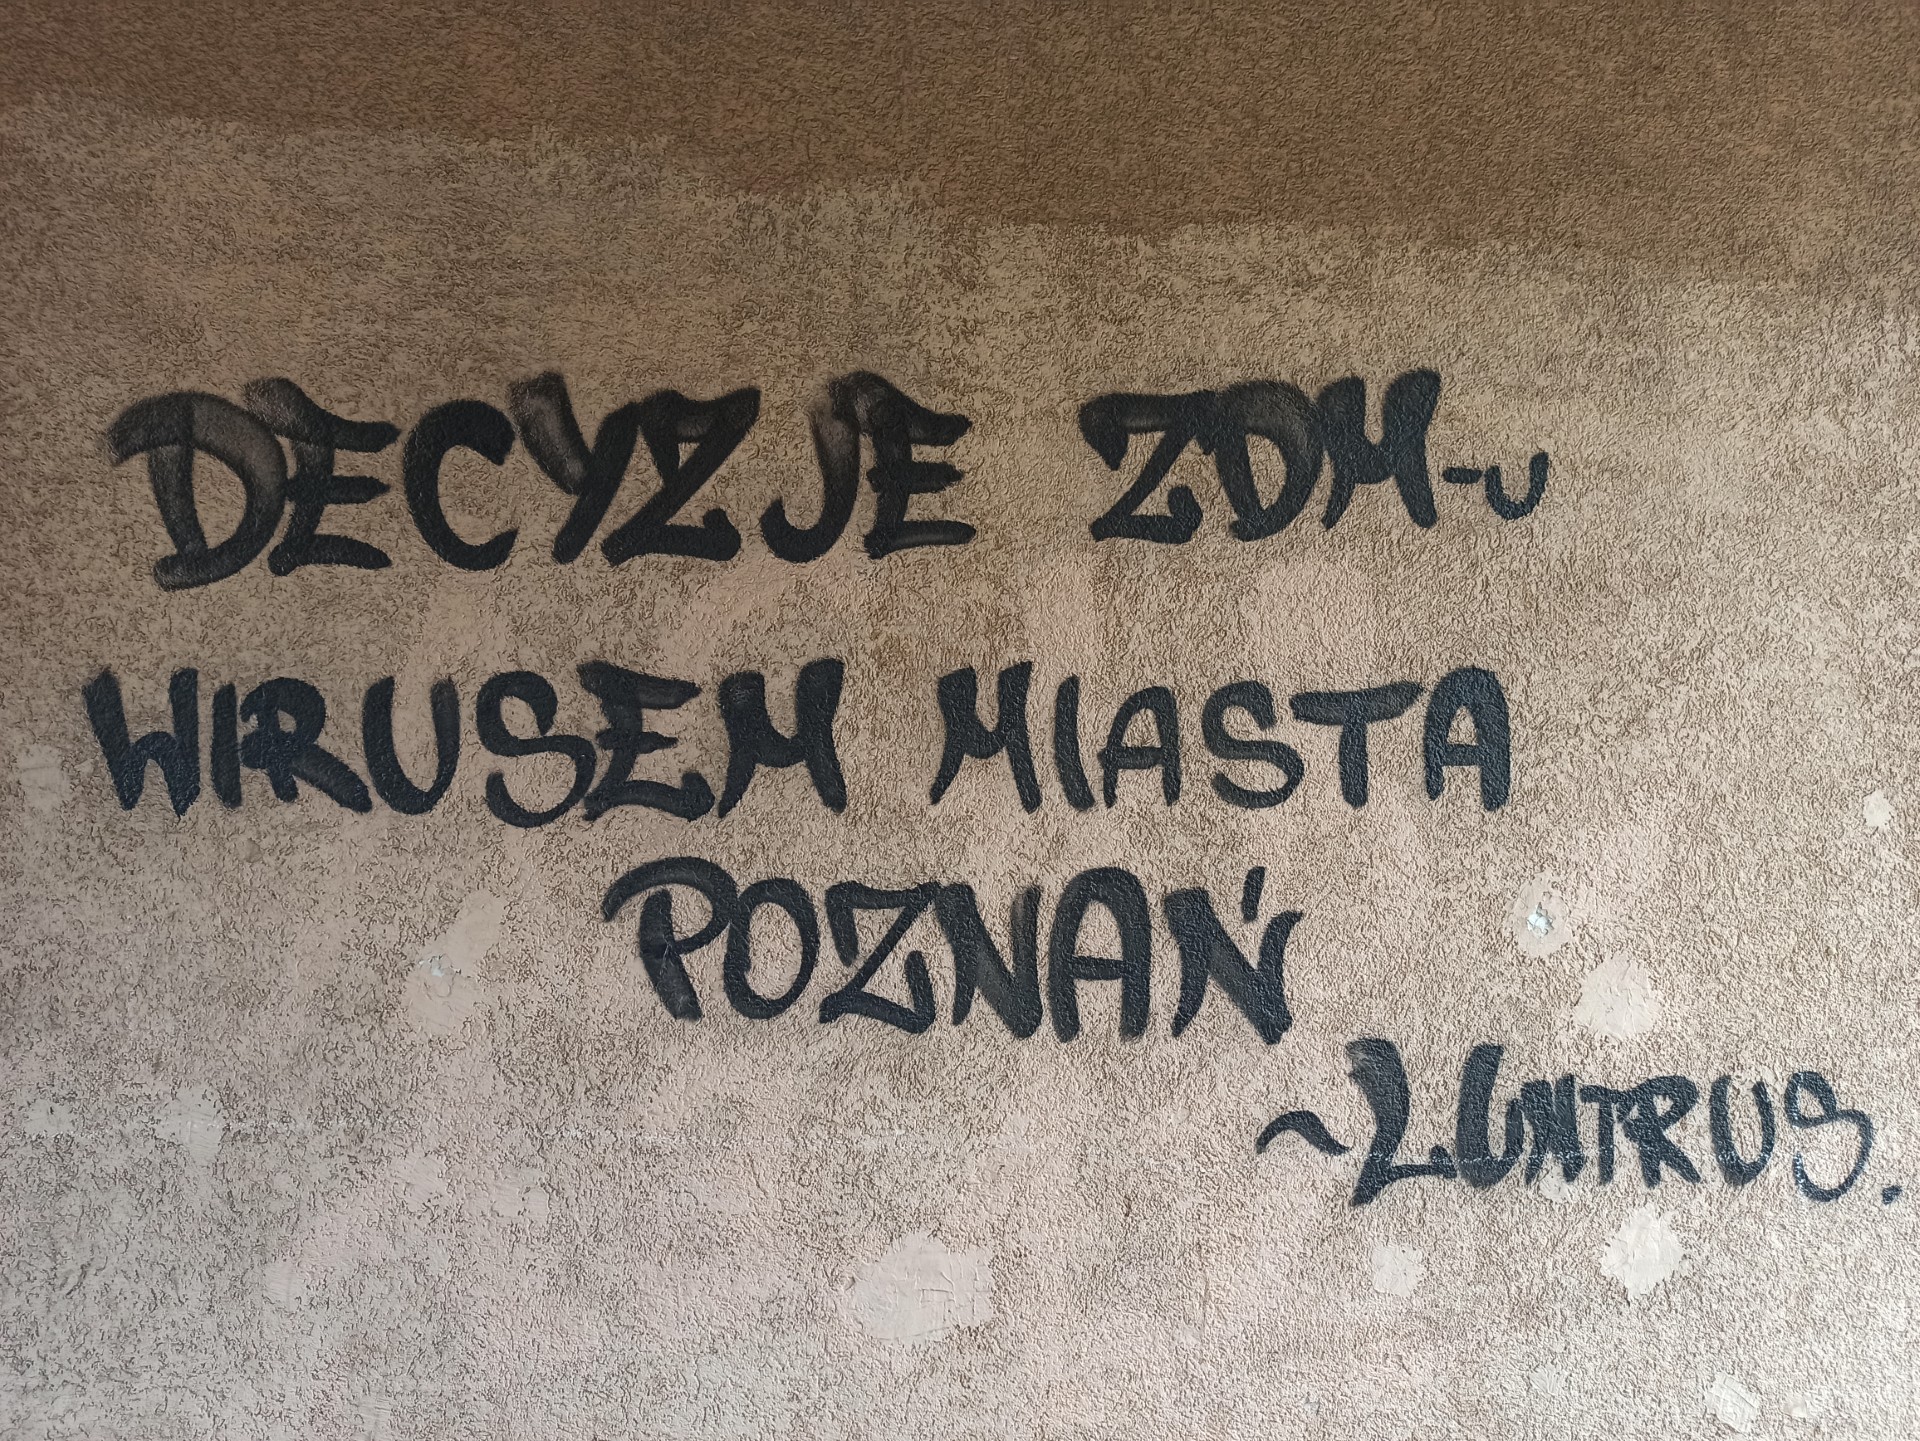 DECYZJE ZDM-u
WIRUSEM MIASTA
POZNAŃ
~LUNTRUS.